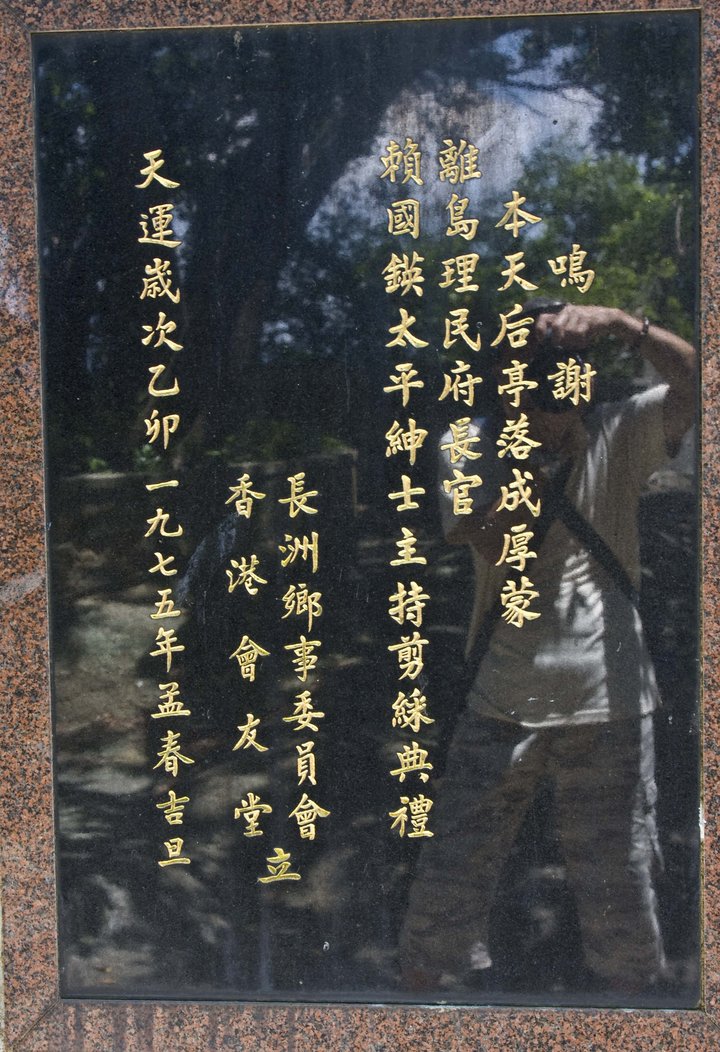 鳴謝
本天后亭落成厚蒙
離島理民府長官
賴國鍈太平紳士主持剪綵典禮
長洲鄉事委員會
香港會友堂
立
天運歲次乙卯一九七五年孟春吉旦